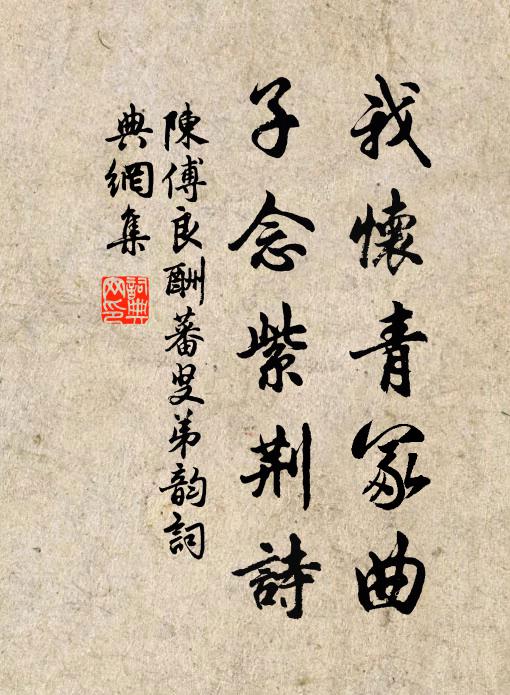 我懷青冢曲
子念紫荆詩
陳傅良酬蕃叟弟韵詞
典網集
詞典网印